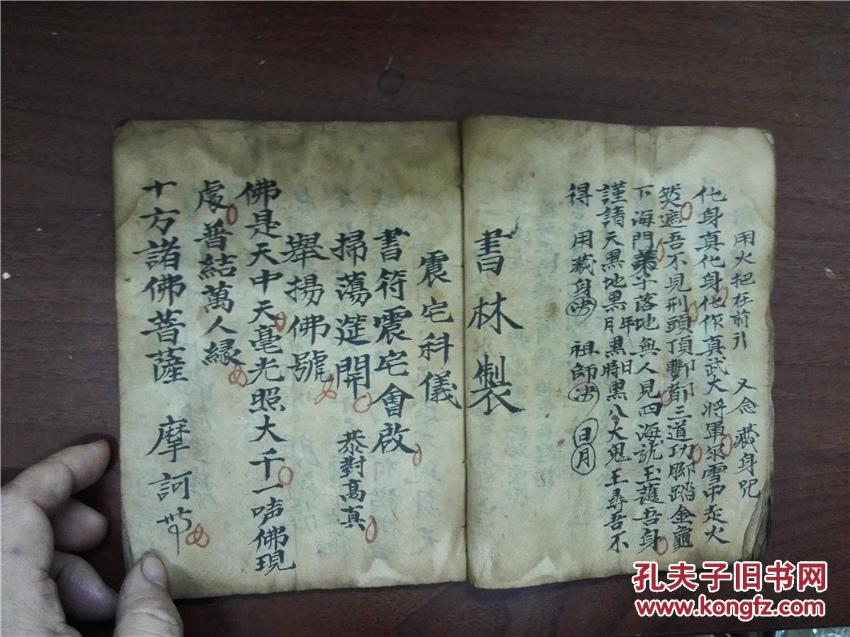 用火把在前引　又念藏身咒
化身真化身化作真武大將軍
吾不見刑頭頂
下海門弟子落地無人見四海
謹請天黑地黑月黑時黑八大鬼王尋吾不
得　用藏身　祖師　日月
書林製
震宅科儀
書符震宅會啟
掃蕩筵開　恭對高真
舉揚佛號
佛是天中天毫光照大千一声佛現
處普結萬人緣
十方諸佛菩薩　摩訶
孔夫子旧书网
www.kongfz.com